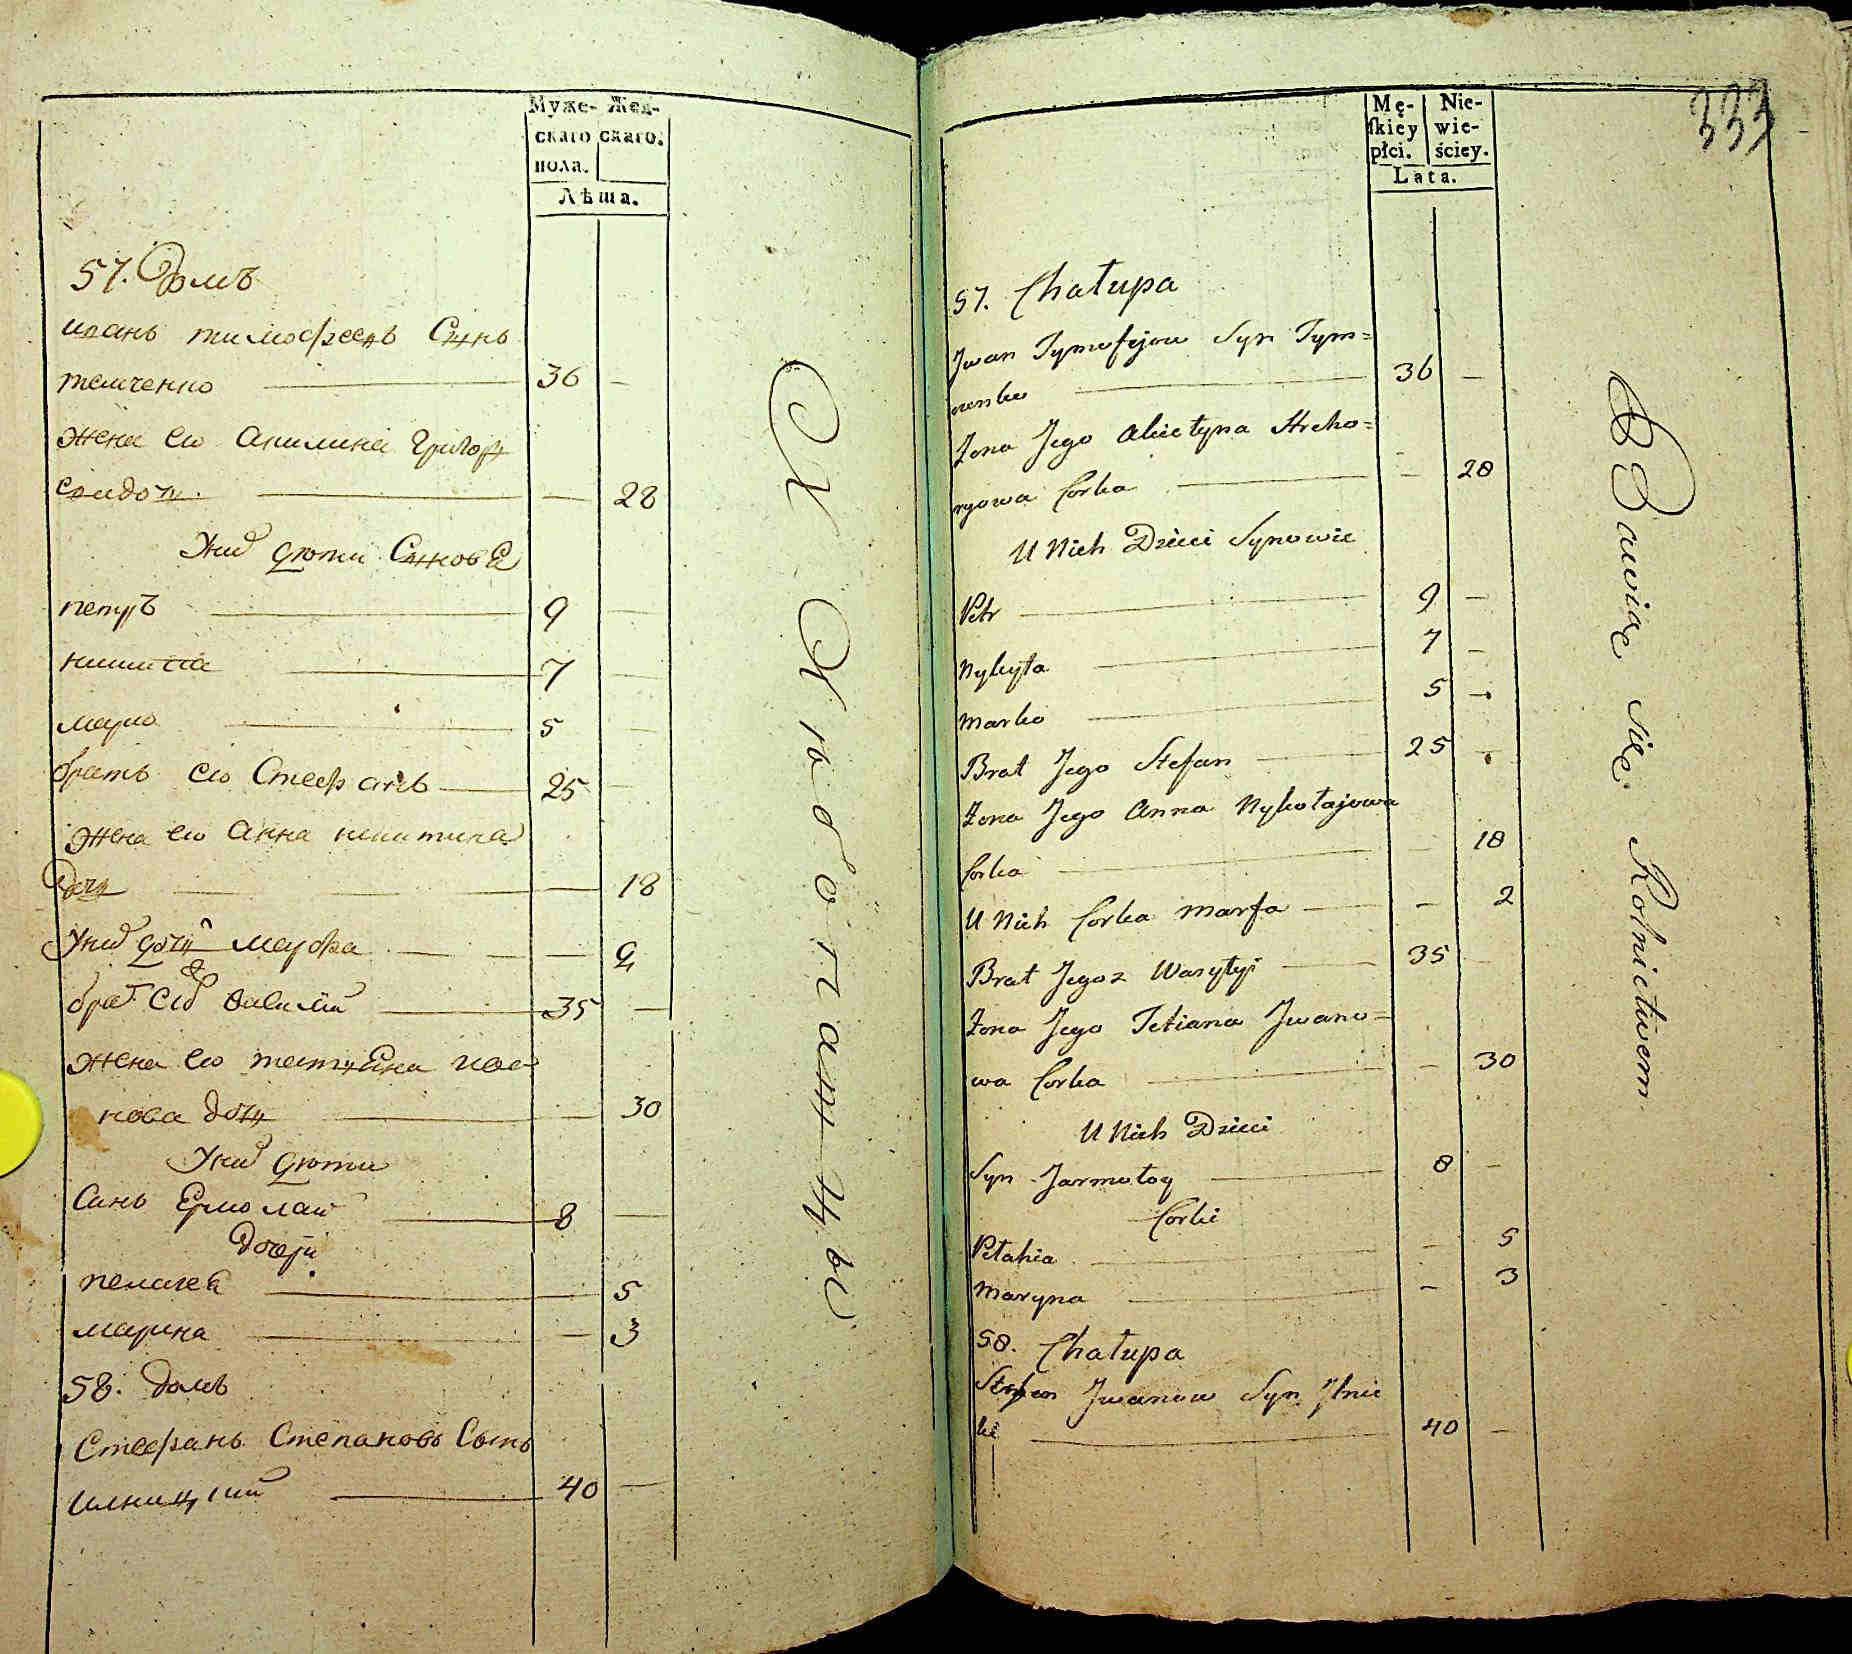 Муже-
скаго
пола.
Жен-
скаго.
Лѣта.
57. Домъ
иванъ тимофеевъ Сынъ
темченко 36 —
жена ею Акилина Григор
28
Унихъ дѣти Сыновѣ
петръ 9 —
никита 7 —
марко 5 —
братъ ею Стефанъ 25 —
жена ею Анна никитина
дочь — 18
Унихъ дочь марфа — 2
братъ василий 35 —
жена ею татиѣна ива-
нова дочь — 30
Унихъ дѣти
Синъ Ермолай 8 —
дочери
пелагея — 5
марина — 3
58. домъ
Стефанъ Степановъ Сынъ
илницкий 40 —
Хлѣбопашцы
333
Mę-
skiey
płci.
Nie-
wie-
ściey.
Lata.
57. Chałupa
Jwan Tymofejow Syn Tym=
czenko 36 —
Żona Jego Akietyna Hreho=
ryowa Corka — 28
U Nich Dzieci Synowie
Petr 9 —
Nykyta 7 —
Marko 5 —
Brat Jego Stefan 25 —
Żona Jego Anna Nykołajowa
Corka — 18
U Nich Corka Marfa — 2
Brat Jegoż Wasylyi 35 —
Żona Jego Tetiana Jwano=
wa Corka — 30
U Nich Dzieci
Syn Jarmołoy 8 —
Corki
Pełahia — 5
Maryna — 3
58. Chałupa
Stefan Jwanow Syn Jlnic
ki 40 —
Bawiąc się Rolnictwem